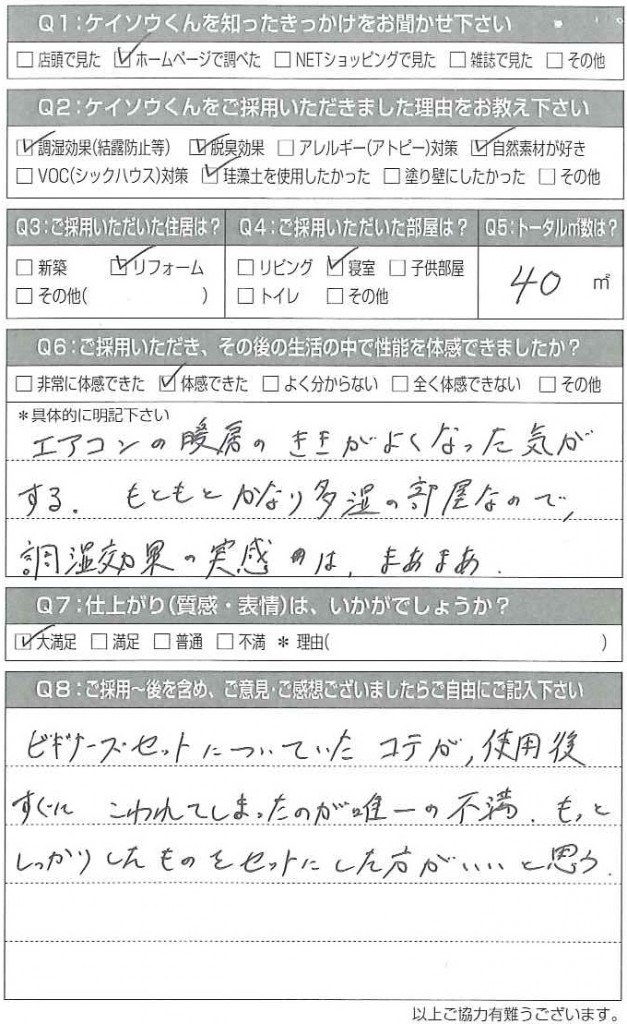 Q1：ケイソウくんを知ったきっかけをお聞かせ下さい
□店頭で見た ☑ホームページで調べた □NETショッピングで見た □雑誌で見た □その他
Q2：ケイソウくんをご採用いただきました理由をお教え下さい
☑調湿効果(結露防止等) ☑脱臭効果 □アレルギー(アトピー)対策 ☑自然素材が好き
□VOC(シックハウス)対策 ☑珪藻土を使用したかった □塗り壁にしたかった □その他
Q3：ご採用いただいた住居は？
□新築 ☑リフォーム
□その他( )
Q4：ご採用いただいた部屋は？
□リビング ☑寝室 □子供部屋
□トイレ □その他
Q5：トータル㎡数は？
40 ㎡
Q6：ご採用いただき、その後の生活の中で性能を体感できましたか？
□非常に体感できた ☑体感できた □よく分からない □全く体感できない □その他
＊具体的に明記下さい
エアコンの暖房のききがよくなった気が
する. もともとかなり多湿の部屋なので,
調湿効果の実感は, まあまあ.
Q7：仕上がり(質感・表情)は、いかがでしょうか？
☑大満足 □満足 □普通 □不満 ＊理由( )
Q8：ご採用～後を含め、ご意見・ご感想ございましたらご自由にご記入下さい
ビギナーズ・セットについていたコテが, 使用後
すぐにこわれてしまったのが唯一の不満. もっと
しっかりしたものをセットにした方がいいと思う.
以上ご協力有難うございます。